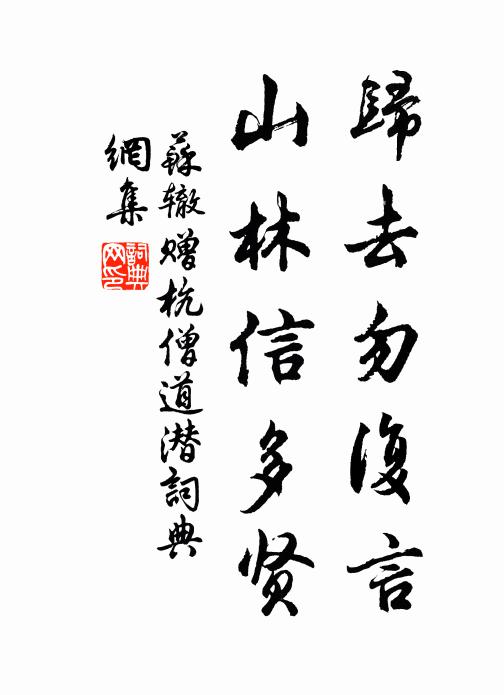 歸去勿復言
山林信多贤
蘇辙赠杭僧道潜詞典
網集
詞典网印